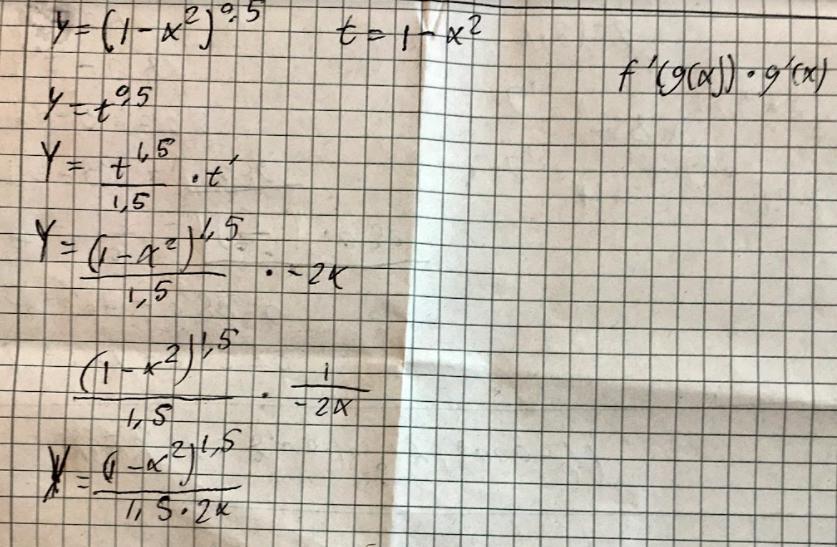 y = (1 - x²)^0,5    t = 1 - x²
f'(g(x)) · g'(x)
y = t^0,5
y = t^1,5 / 1,5 · t'
y = (1 - x²)^1,5 / 1,5 · -2x
(1 - x²)^1,5 / 1,5 · 1 / -2x
y = (1 - x²)^1,5 / 1,5 · 2x